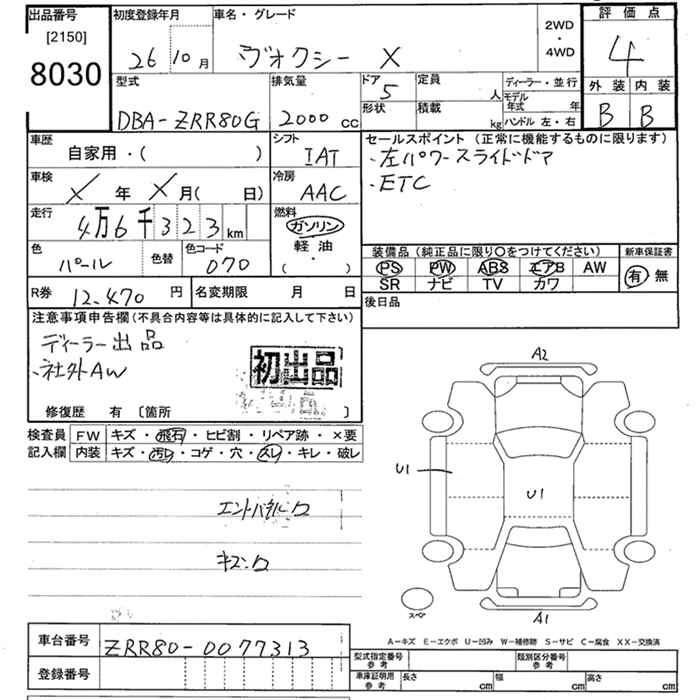 出品番号
[2150]
8030
初度登録年月
26 10月
車名・グレード
ヴォクシー X
2WD
・
4WD
評価点
4
外装 内装
B B
型式
DBA-ZRR80G
排気量
2000 cc
ドア
5
形状
定員
人
積載
kg
ディーラー・並行
モデル年式 年
ハンドル 左・右
車歴
自家用・( )
シフト
IAT
車検
X 年 X 月( 日)
冷房
AAC
走行
4万6千323km
燃料
ガソリン
軽油
( ・ )
色
パール
色替
色コード
070
R券 12.470 円
名変期限 月 日
セールスポイント (正常に機能するものに限ります)
・左パワースライドドア
・ETC
装備品 (純正品に限り○をつけてください)
PS PW ABS エアB AW
SR ナビ TV カワ
新車保証書
有 無
後日品
注意事項申告欄 (不具合内容等は具体的に記入して下さい)
ディーラー出品
・社外AW
初出品
修復歴 有 [箇所 ]
検査員
記入欄
FW キズ・飛石・ヒビ割・リペア跡・×要
内装 キズ・汚レ・コゲ・穴・スレ・キレ・破レ
A2
U1
U1
スペア
A1
A-キズ E-エクボ U-凹み W-補修跡 S-サビ C-腐食 XX-交換済
車台番号 ZRR80-0077313
登録番号
型式指定番号
参考
類別区分番号
参考
車庫証明用
参考
長さ cm 幅 cm 高さ cm